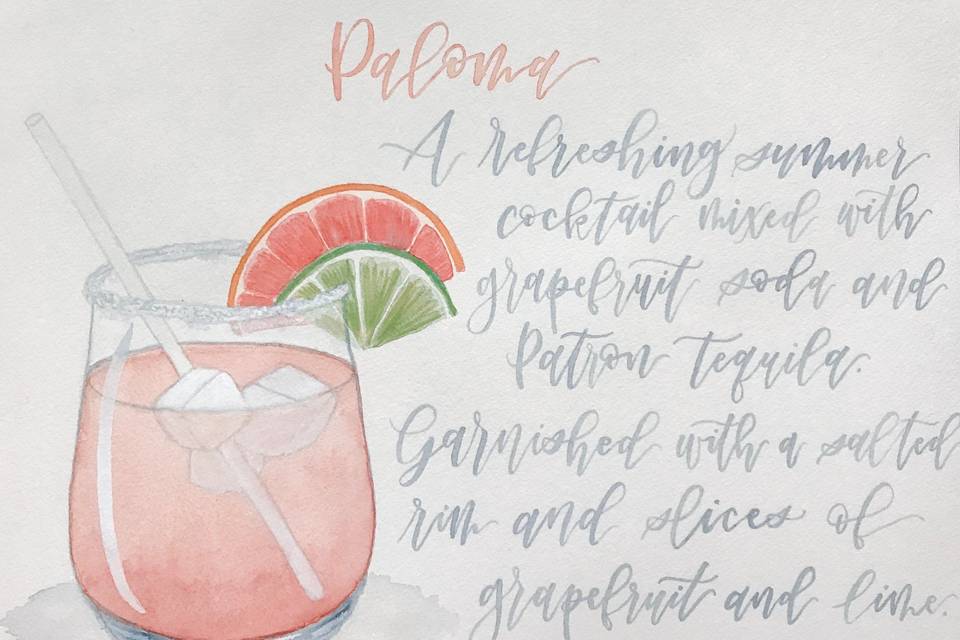 Paloma
A refreshing summer
cocktail mixed with
grapefruit soda and
Patron Tequila.
Garnished with a salted
rim and slices of
grapefruit and lime.